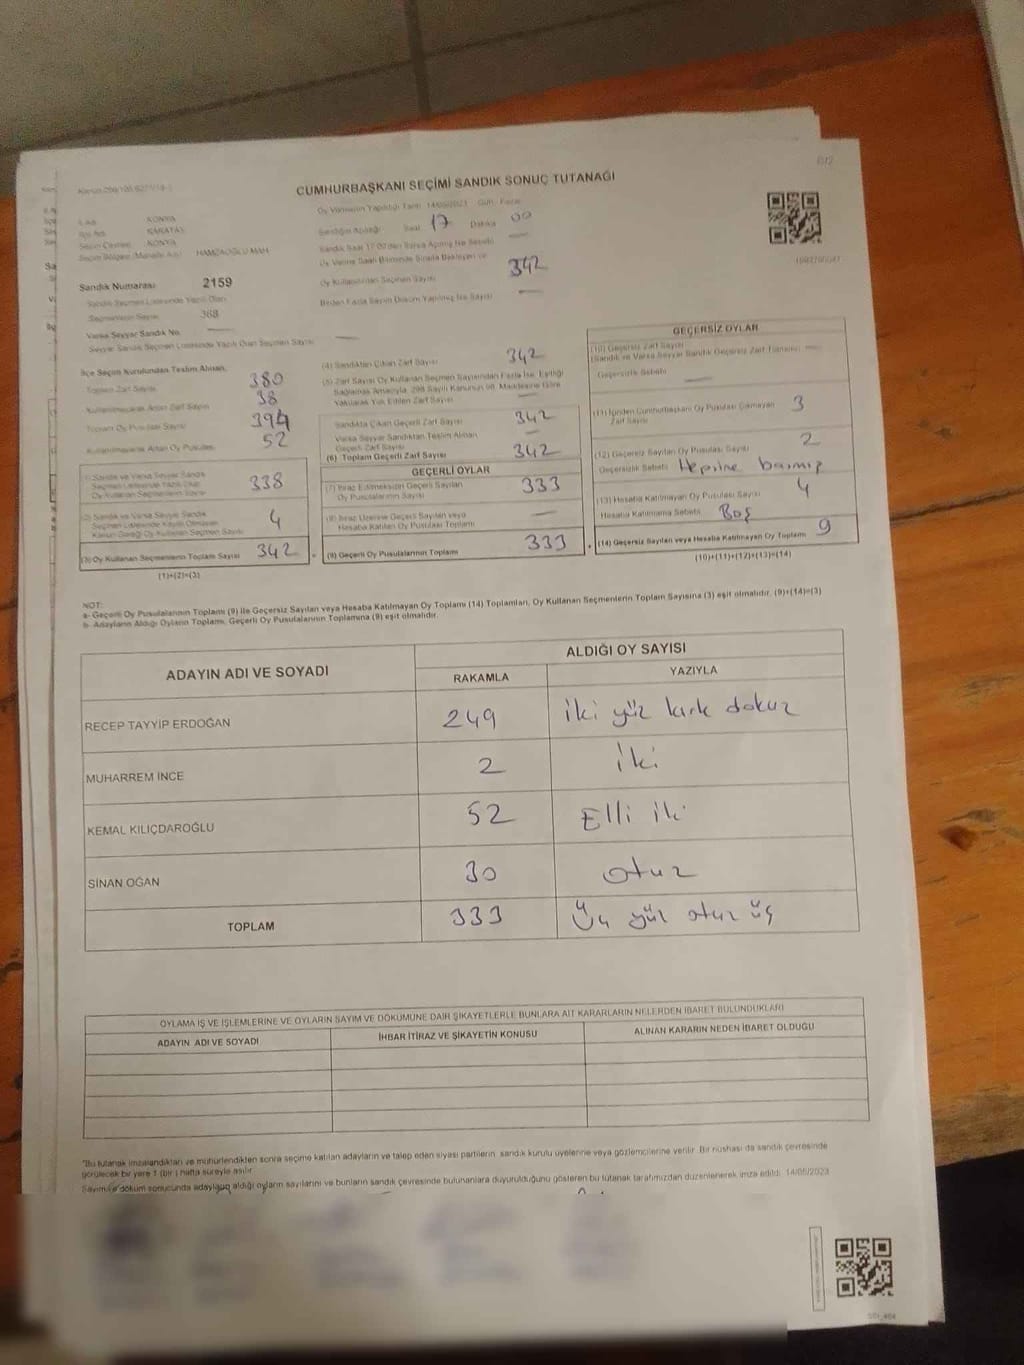 CUMHURBAŞKANI SEÇİMİ SANDIK SONUÇ TUTANAĞI
Oy Vermenin Yapıldığı Tarih 14/05/2023 Gün Pazar
Sandığın Açıldığı Saat 17 Dakika 00
KONYA
KARATAY
Seçim Çevresi KONYA
HAMZAOĞLU MAH
Sandık Numarası 2159
Sandık Seçmen Listesinde Yazılı Olan
Seçmenlerin Sayısı 388
Oy Kullandırılan Seçmen Sayısı 342
Birden Fazla Sayım Döküm Yapılmış İse Sayısı
Varsa Seyyar Sandık No
Seyyar Sandık Seçmen Listesinde Yazılı Olan Seçmen Sayısı
İlçe Seçim Kurulundan Teslim Alınan
Toplam Zarf Sayısı 380
Kullanılmayarak Artan Zarf Sayısı 38
Toplam Oy Pusulası Sayısı 394
Kullanılmayarak Artan Oy Pusulası 52
(1) Sandık ve Varsa Seyyar Sandık
Seçmen Listesinde Yazılı Olup
Oy Kullanan Seçmenlerin Sayısı 338
(2) Sandık ve Varsa Seyyar Sandık
Seçmen Listesinde Kayıtlı Olmayan
Kanun Gereği Oy Kullanan Seçmen Sayısı 4
(3) Oy Kullanan Seçmenlerin Toplam Sayısı 342
(1)+(2)=(3)
(4) Sandıktan Çıkan Zarf Sayısı 342
(5) Zarf Sayısı Oy Kullanan Seçmen Sayısından Fazla İse, Eşitliği
Sağlamak Amacıyla, 298 Sayılı Kanunun 98. Maddesine Göre
Yakılarak Yok Edilen Zarf Sayısı
Sandıkta Çıkan Geçerli Zarf Sayısı 342
Varsa Seyyar Sandıktan Teslim Alınan
Geçerli Zarf Sayısı
(6) Toplam Geçerli Zarf Sayısı 342
GEÇERLİ OYLAR
(7) İtiraz Edilmeksizin Geçerli Sayılan
Oy Pusulalarının Sayısı 333
(8) İtiraz Üzerine Geçerli Sayılan veya
Hesaba Katılan Oy Pusulası Toplamı
(9) Geçerli Oy Pusulalarının Toplamı 333
GEÇERSİZ OYLAR
(10) Geçersiz Zarf Sayısı
(Sandık ve Varsa Seyyar Sandık Geçersiz Zarf Toplamı)
Geçersizlik Sebebi
(11) İçinden Cumhurbaşkanı Oy Pusulası Çıkmayan
Zarf Sayısı 3
(12) Geçersiz Sayılan Oy Pusulası Sayısı 2
Geçersizlik Sebebi Hepsine basmış
(13) Hesaba Katılmayan Oy Pusulası Sayısı 4
Hesaba Katılmama Sebebi Boş
(14) Geçersiz Sayılan veya Hesaba Katılmayan Oy Toplamı 9
(10)+(11)+(12)+(13)=(14)
NOT:
a- Geçerli Oy Pusulalarının Toplamı (9) ile Geçersiz Sayılan veya Hesaba Katılmayan Oy Toplamı (14) Toplamları, Oy Kullanan Seçmenlerin Toplam Sayısına (3) eşit olmalıdır. (9)+(14)=(3)
b- Adayların Aldığı Oyların Toplamı, Geçerli Oy Pusulalarının Toplamına (9) eşit olmalıdır.
ADAYIN ADI VE SOYADI
ALDIĞI OY SAYISI
RAKAMLA YAZIYLA
RECEP TAYYİP ERDOĞAN 249 iki yüz kırk dokuz
MUHARREM İNCE 2 iki
KEMAL KILIÇDAROĞLU 52 Elli iki
SİNAN OĞAN 30 otuz
TOPLAM 333 Üç yüz otuz üç
OYLAMA İŞ VE İŞLEMLERİNE VE OYLARIN SAYIM VE DÖKÜMÜNE DAİR ŞİKAYETLERLE BUNLARA AİT KARARLARIN NELERDEN İBARET BULUNDUKLARI
ADAYIN ADI VE SOYADI İHBAR İTİRAZ VE ŞİKAYETİN KONUSU ALINAN KARARIN NEDEN İBARET OLDUĞU
"Bu tutanak imzalandıktan ve mühürlendikten sonra seçime katılan adayların ve talep eden siyasi partilerin, sandık kurulu üyelerine veya gözlemcilerine verilir. Bir nüshası da sandık çevresinde
görülecek bir yere 1 (bir) hafta süreyle asılır.
Sayım ve döküm sonucunda adayların aldığı oyların sayılarını ve bunların sandık çevresinde bulunanlara duyurulduğunu gösteren bu tutanak tarafımızdan düzenlenerek imza edildi. 14/05/2023